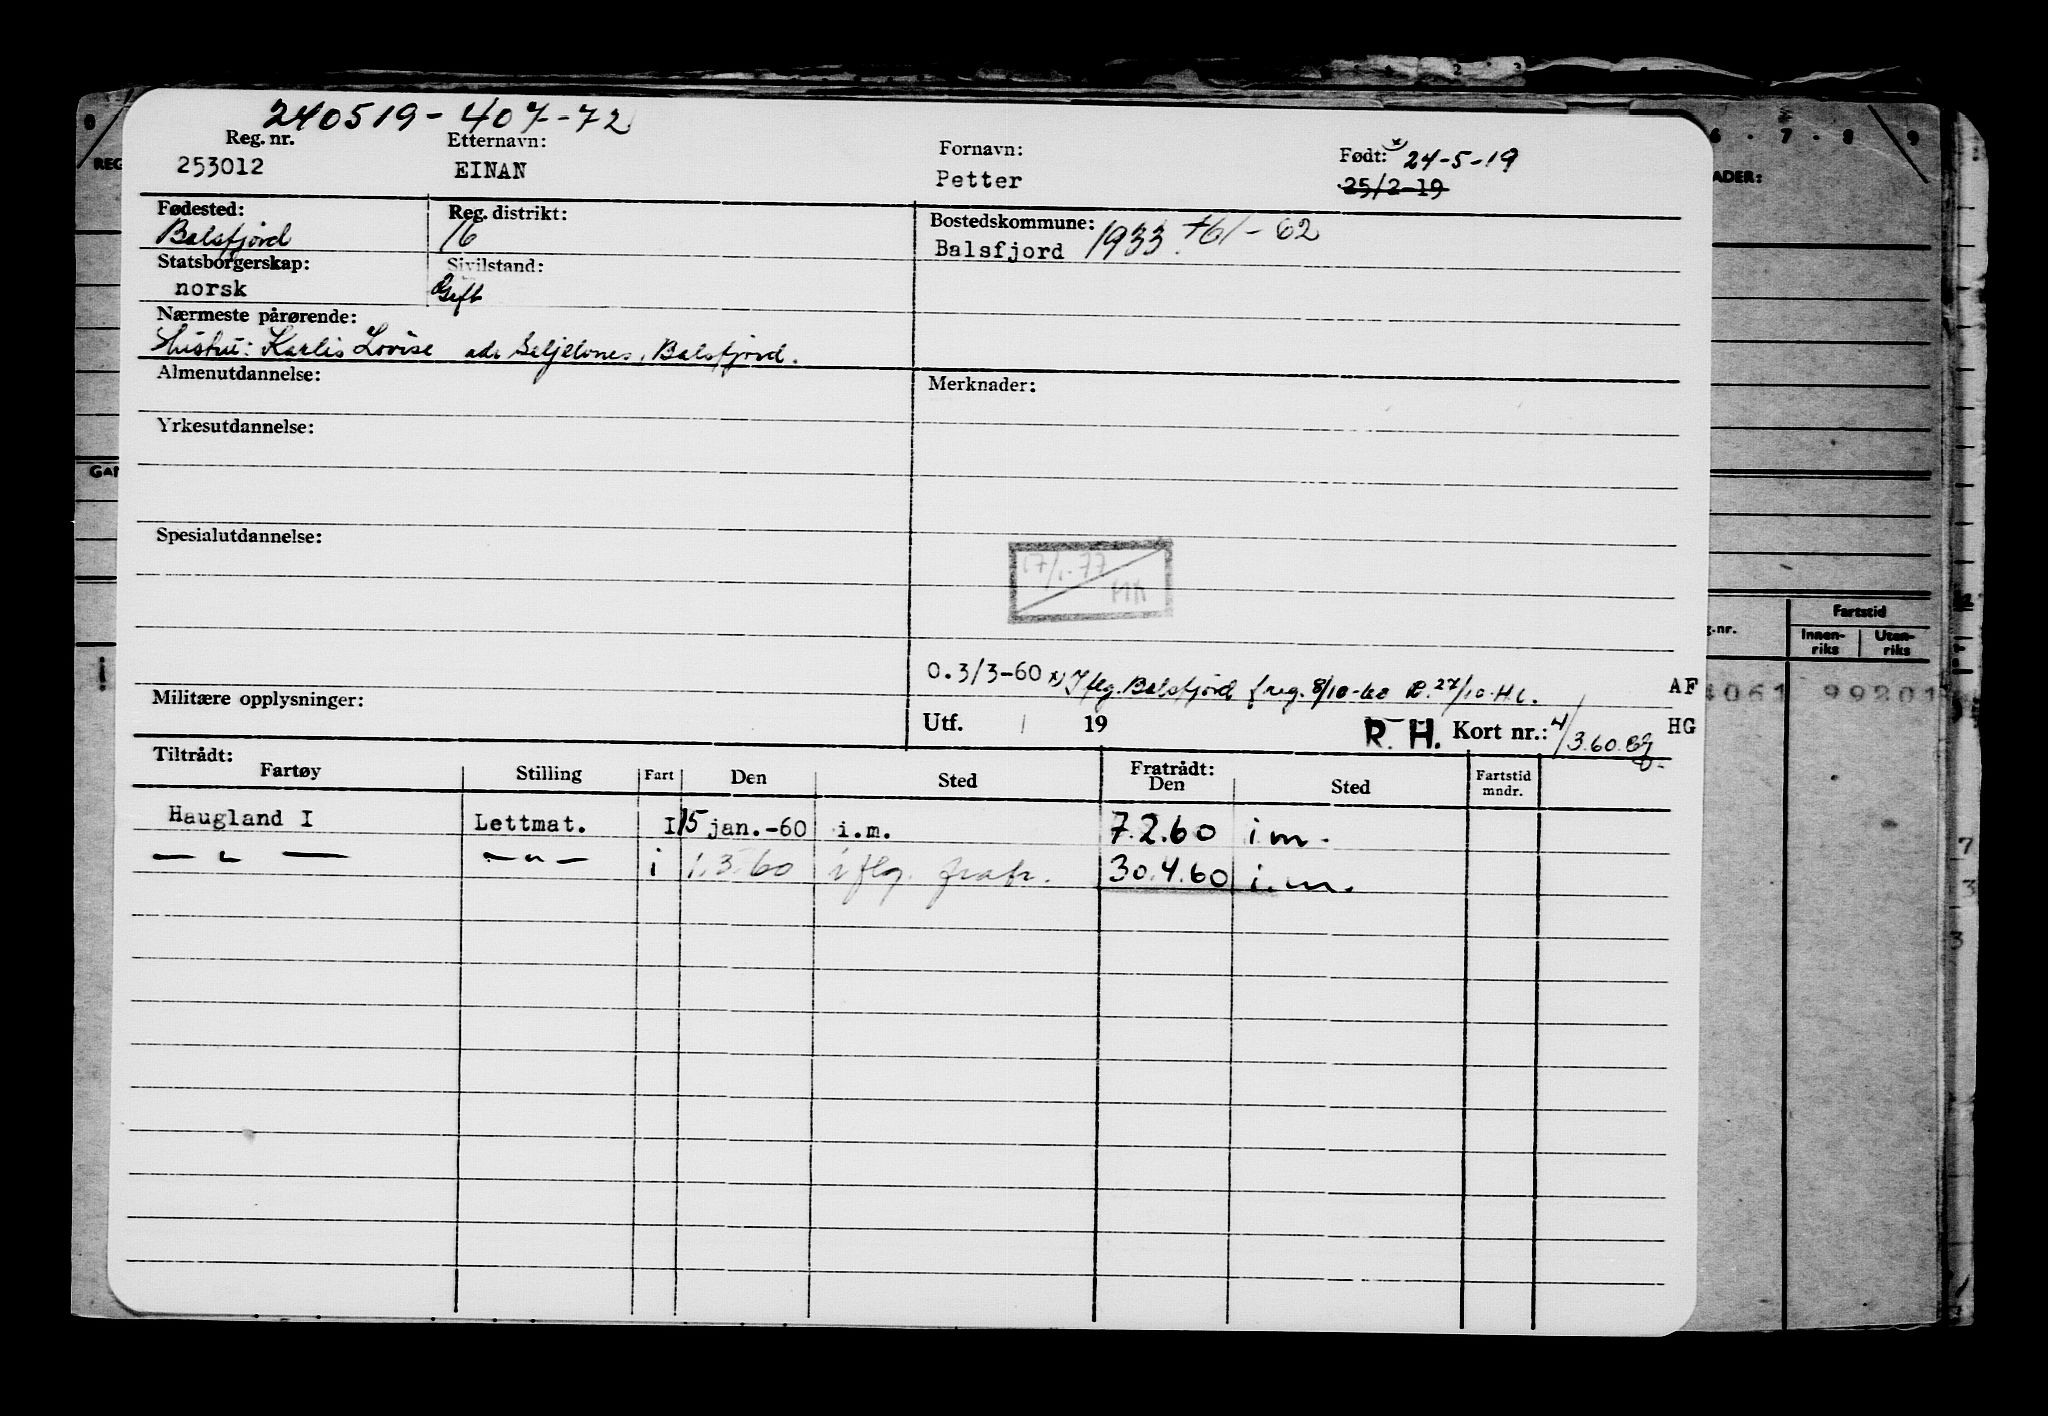 240519-407-72
Reg. nr. Etternavn: Fornavn: Født: x 24-5-19
253012 EINAN Petter 25/2-19
Fødested: Reg. distrikt: Bostedskommune:
Balsfjord 16 Balsfjord 1933 +61-62
Statsborgerskap: Sivilstand:
norsk Gift
Nærmeste pårørende:
Hustru: Karlis Lovise adr. Balsfjord.
Almenutdannelse: Merknader:
Yrkesutdannelse:
Spesialutdannelse:
17/1-77
0.3/3-60 x) Iflg. Balsfjord f.reg. 8/10-60 27/10 AF
Militære opplysninger: Utf. / 19 R. H. Kort nr.: 4/3.60 HG
Tiltrådt: Fratrådt:
Fartøy Stilling Fart Den Sted Den Sted Fartstid mndr.
Haugland I Lettmat. I 15 jan.-60 i.m. 7.2.60 i m.
— " — — " — i 1.3.60 iflg. fratr. 30.4.60 i.m.
6 . 7 . 8 . 9
ADER:
Fartstid
Innen-riks Uten-riks
99201